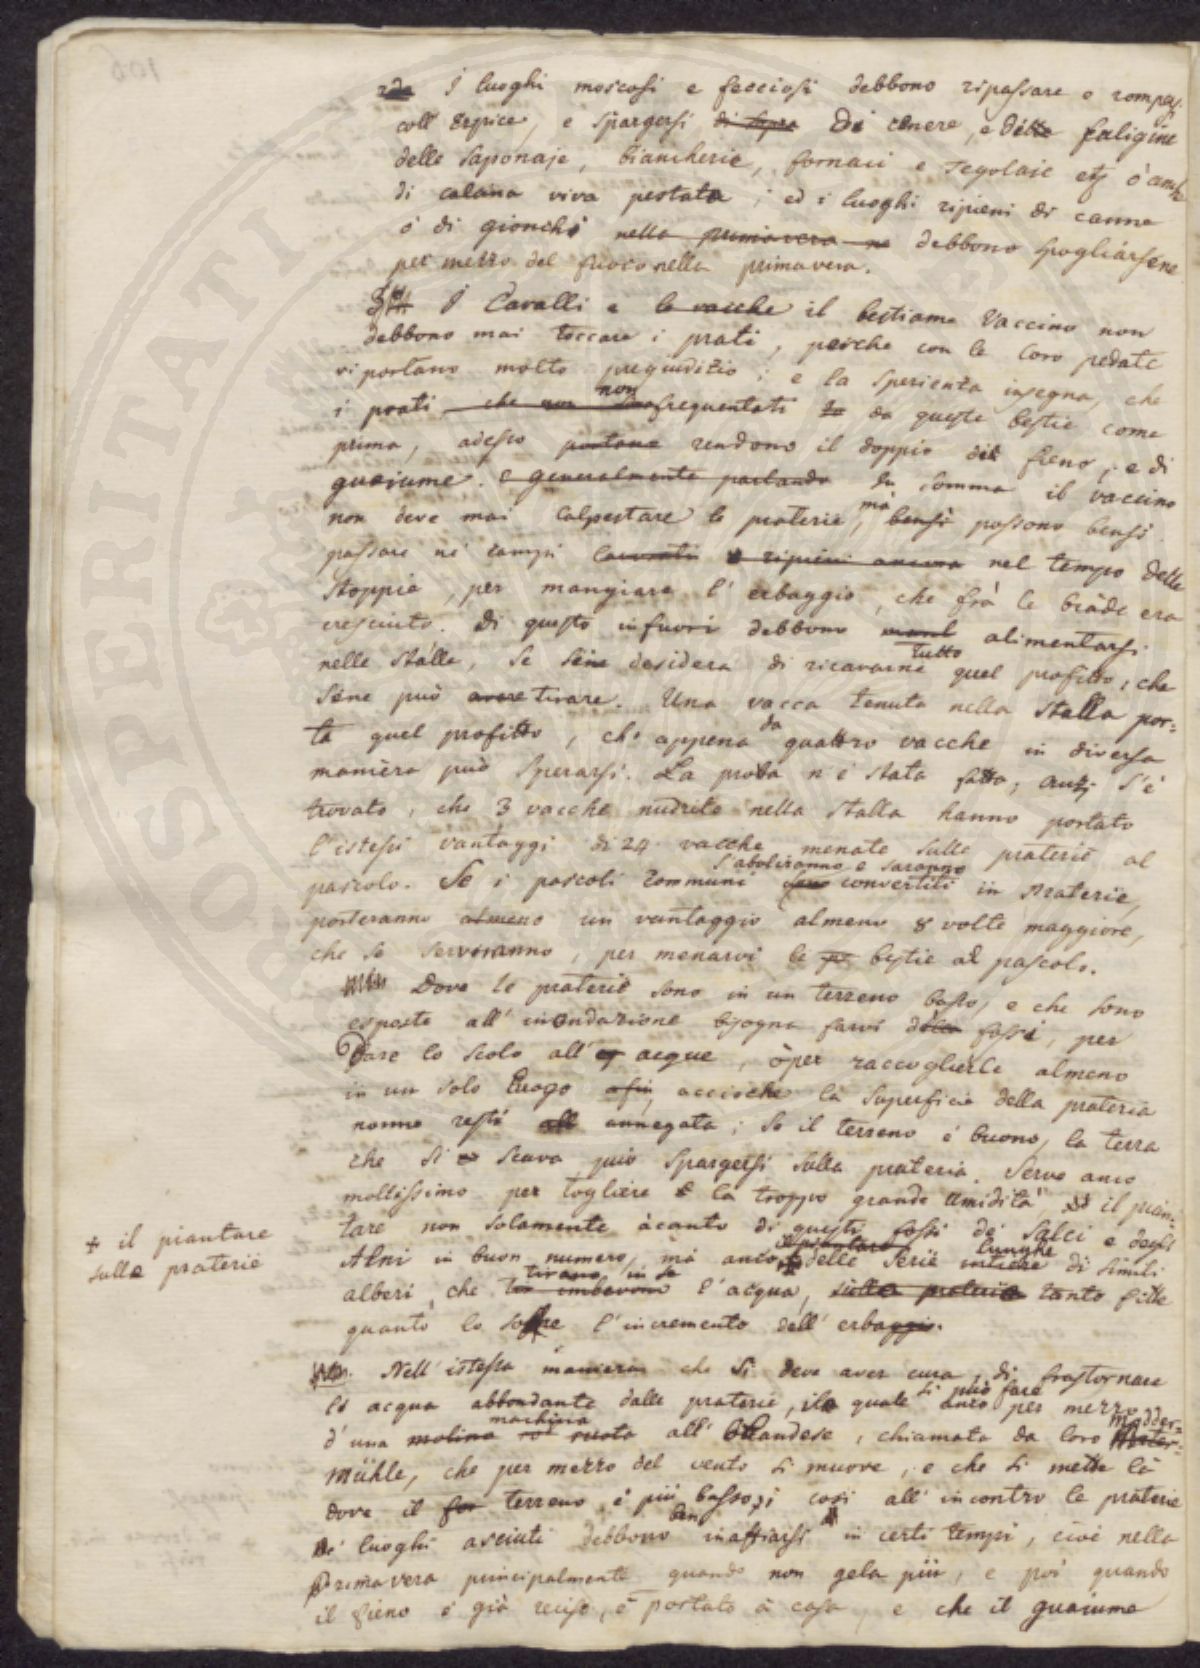 106
2da I luoghi moscosi e fecciosi debbono ripassare o romper
coll' Erpice, e spargersi di sopra di cenere, e dette faligine
delle saponaje, biancherie, fornaci e Tegolaie etz ò anche
di calcina viva pestata; ed i luoghi ripieni di canne
ò di gionchi nella primavera ne debbono spogliarsene
per mezzo del fuoco nella primavera.
3 I Cavalli e le vacche il bestiame Vaccino non
debbono mai toccare i prati, perche con le loro pedate
vi portano molto pregiuditio; e la sperienza insegna, che
i prati che non non frequentati da queste bestie come
prima, adesso portano rendono il doppio del fieno, e di
guaiume. e generalmente parlando In somma il vaccino
non deve mai calpestare le praterie, mà bensì possono bensi
passare ne' campi e ripieni ancora nel tempo delle
stoppie, per mangiare l' erbaggio, che frà le biade era
cresciuto. Di questo infuori debbono alimentarsi
nelle stalle, se sene desidera di ricavarne tutto quel profitto, che
sene può avere tirare. Una vacca tenuta nella stalla por-
ta quel profitto, che appena da quattro vacche in diversa
maniera può sperarsi. La prova n'è stata fatta, anzi s'è
trovato, che 3 vacche nudrite nella stalla hanno portato
l'istessi vantaggi di 24 vacche menate sulle praterie al
pascolo. Se i pascoli communi s'aboliranno e saranno convertiti in Praterie,
porteranno almeno un vantaggio almeno 8 volte maggiore,
che se serviranno, per menarvi le bestie al pascolo.
Dove le praterie sono in un terreno basso, e che sono
esposte all' inondazione bisogna farvi delle fossi, per
Dare lo scolo all' acque, ò per raccoglierle almeno
in un solo luogo acciochè la superficie della prateria
nonne resti annegata; Se il terreno è buono, la terra
che si scava può spargersi sulla prateria. Serve anco
moltissimo per togliere la troppo grande umidità, il pian-
tare non solamente àcanto di questi fossi de' Salci e degli
+ il piantare
sulle praterie
Alni in buon numero, mà anco + delle serie lunghe intiere di simili
alberi che tirano in se imbevono l'acqua, sulle praterie tanto fitte
quanto lo soffre l'incremento dell' erbaggio.
Nell' istessa maniera che si deve aver cura, di frastornare
l' acqua abbondante dalle praterie, il quale si può fare anco per mezzo
d' una molino machina ruota all' Ollandese, chiamata da loro Modder-
mühle, che per mezzo del vento si muove, e che si mette là
dove il terreno è più basso; così all' incontro le praterie
de' luoghi asciuti debbono ben inaffiarsi in certi tempi, cioè nella
Primavera principalmente quando non gela più, e poi quando
il fieno è già reciso, è portato à casa, e che il guaiume